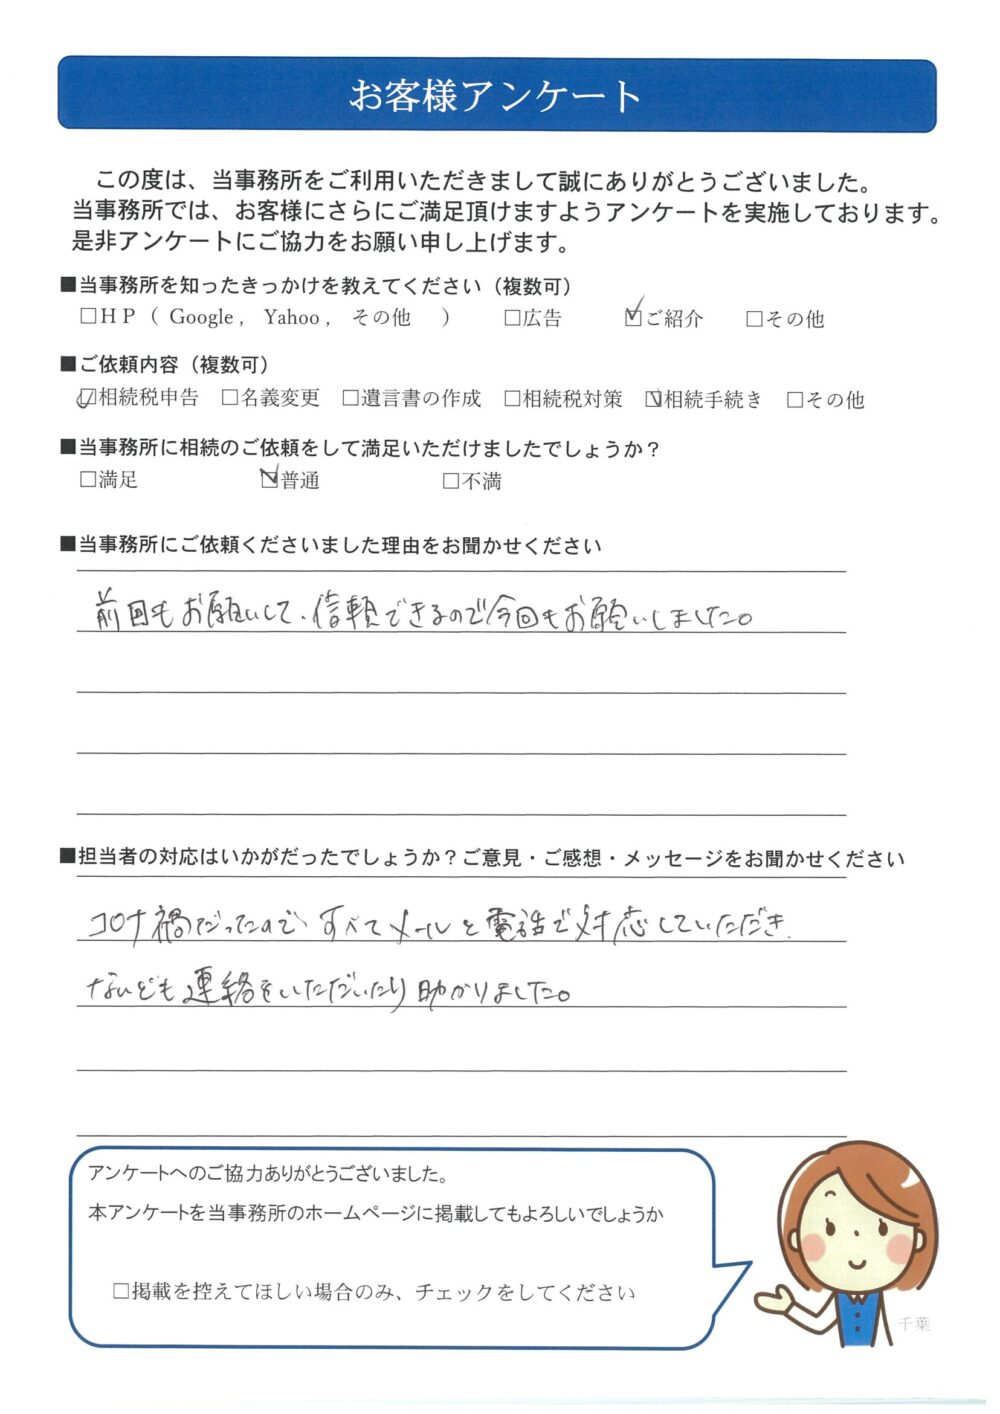 お客様アンケート
この度は、当事務所をご利用いただきまして誠にありがとうございました。
当事務所では、お客様にさらにご満足頂けますようアンケートを実施しております。
是非アンケートにご協力をお願い申し上げます。
■当事務所を知ったきっかけを教えてください（複数可）
□ＨＰ（ Google , Yahoo , その他 ） □広告 ☑ご紹介 □その他
■ご依頼内容（複数可）
☑相続税申告 □名義変更 □遺言書の作成 □相続税対策 ☑相続手続き □その他
■当事務所に相続のご依頼をして満足いただけましたでしょうか？
□満足 ☑普通 □不満
■当事務所にご依頼くださいました理由をお聞かせください
前回もお願いして、信頼できるので今回もお願いしました。
■担当者の対応はいかがだったでしょうか？ご意見・ご感想・メッセージをお聞かせください
コロナ禍だったので、すべてメールと電話で対応していただき、
なんども連絡をいただいたり助かりました。
アンケートへのご協力ありがとうございました。
本アンケートを当事務所のホームページに掲載してもよろしいでしょうか
□掲載を控えてほしい場合のみ、チェックをしてください
千葉